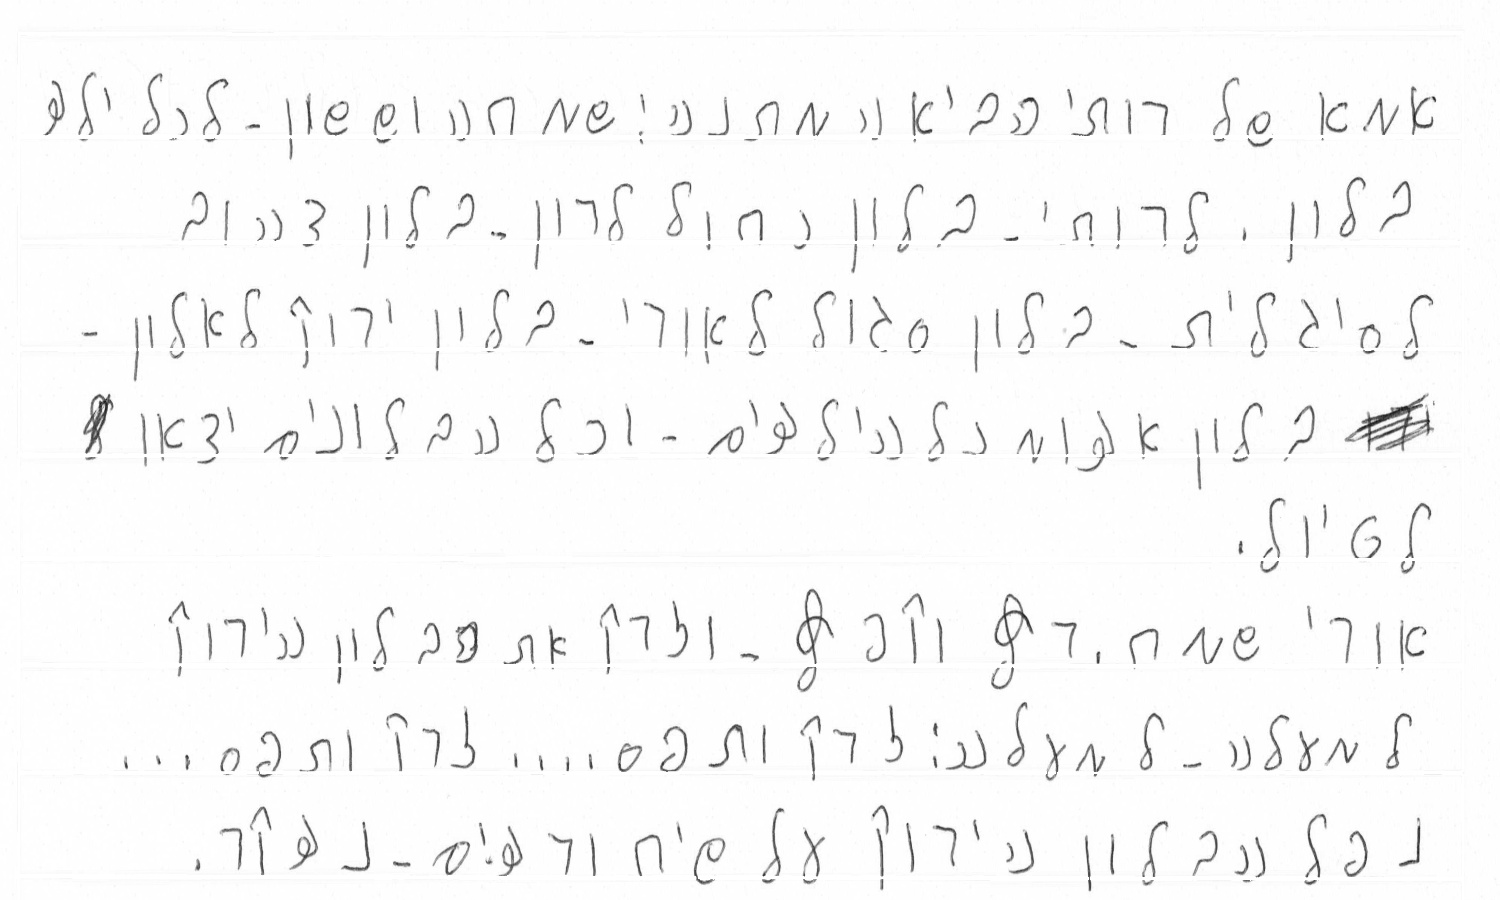 אמא של רותי הביאה מתנה! שמחה וששון - לכל ילד
בלון. לרותי - בלון כחול לרון - בלון צהוב
לסיגלית - בלון סגול לאורי - בלון ירוק לאלון -
בלון אדום מכל הילדים - וכל הבלונים יצאו
לטיול.
אורי שמח. רץ וקפץ - וזרק את הבלון הירוק
למעלה - למעלה! זרק ותפס.... זרק ותפס...
נפל הבלון הירוק על שיח ורדים - נדקר.